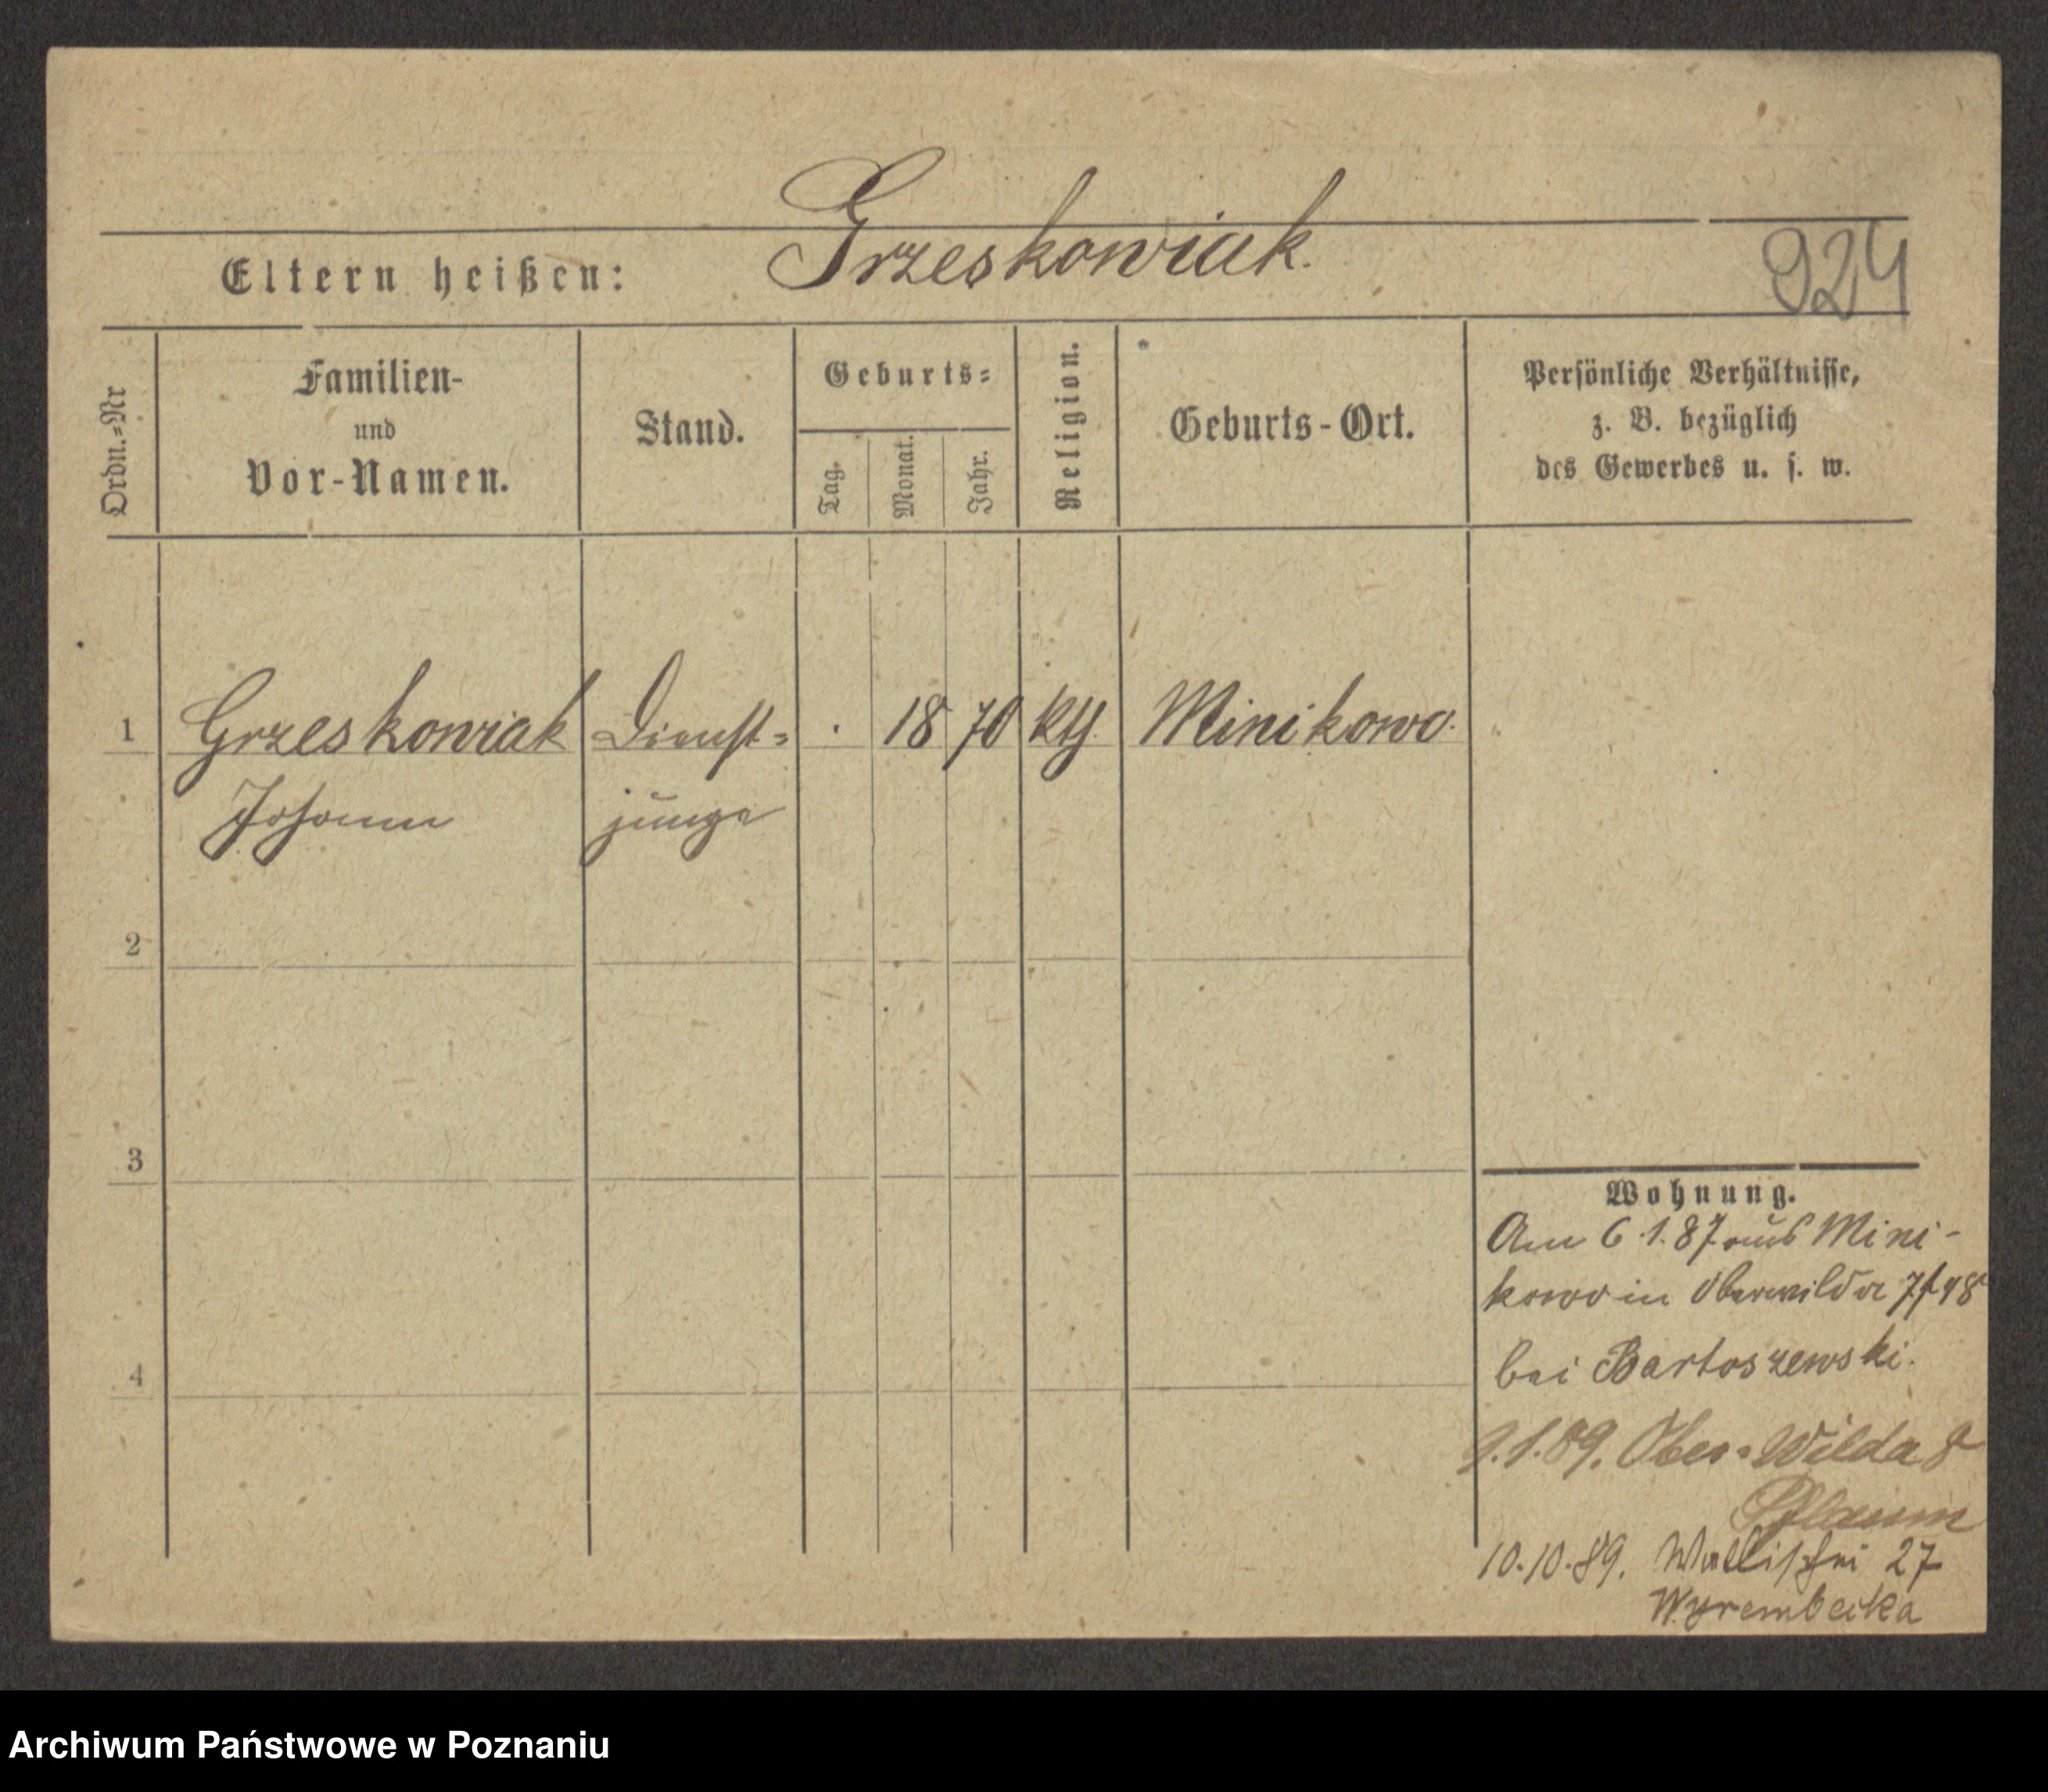 Grzeskowiak.
Eltern heißen:
924
Ordn.=Nr
Familien-
und
Vor-Namen.
Stand.
Geburts=
Tag.
Monat.
Jahr.
Religion.
Geburts-Ort.
Persönliche Verhältnisse,
z. B. bezüglich
des Gewerbes u. s. w.
1 Grzeskowiak Dienst= . 18 70 kth. Minikowo.
Johann junge
2
3
4
Wohnung.
Am 6.1.87 aus Mini-
kowo in Oberwilda 7/48
bei Bartoszewski.
9.1.89. Ober=Wilda 8
Pflaum
10.10.89. Wallischei 27
Wyrembecka
Archiwum Państwowe w Poznaniu